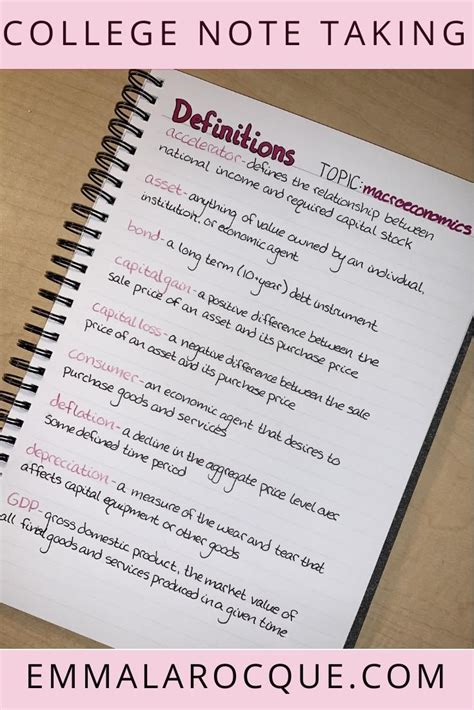 COLLEGE NOTE TAKING
Definitions
TOPIC: macroeconomics
accelerator-defines the relationship between
national income and required capital stock
asset-anything of value owned by an individual,
institution, or economic agent
bond-a long term (10+year) debt instrument
capital gain-a positive difference between the
sale price of an asset and its purchase price
capital loss-a negative difference between the sale
price of an asset and its purchase price
consumer-an economic agent that desires to
purchase goods and services
deflation-a decline in the aggregate price level over
some defined time period
depreciation-a measure of the wear and tear that
affects capital equipment or other goods
GDP-gross domestic product, the market value of
all final goods and services produced in a given time
EMMALAROCQUE.COM